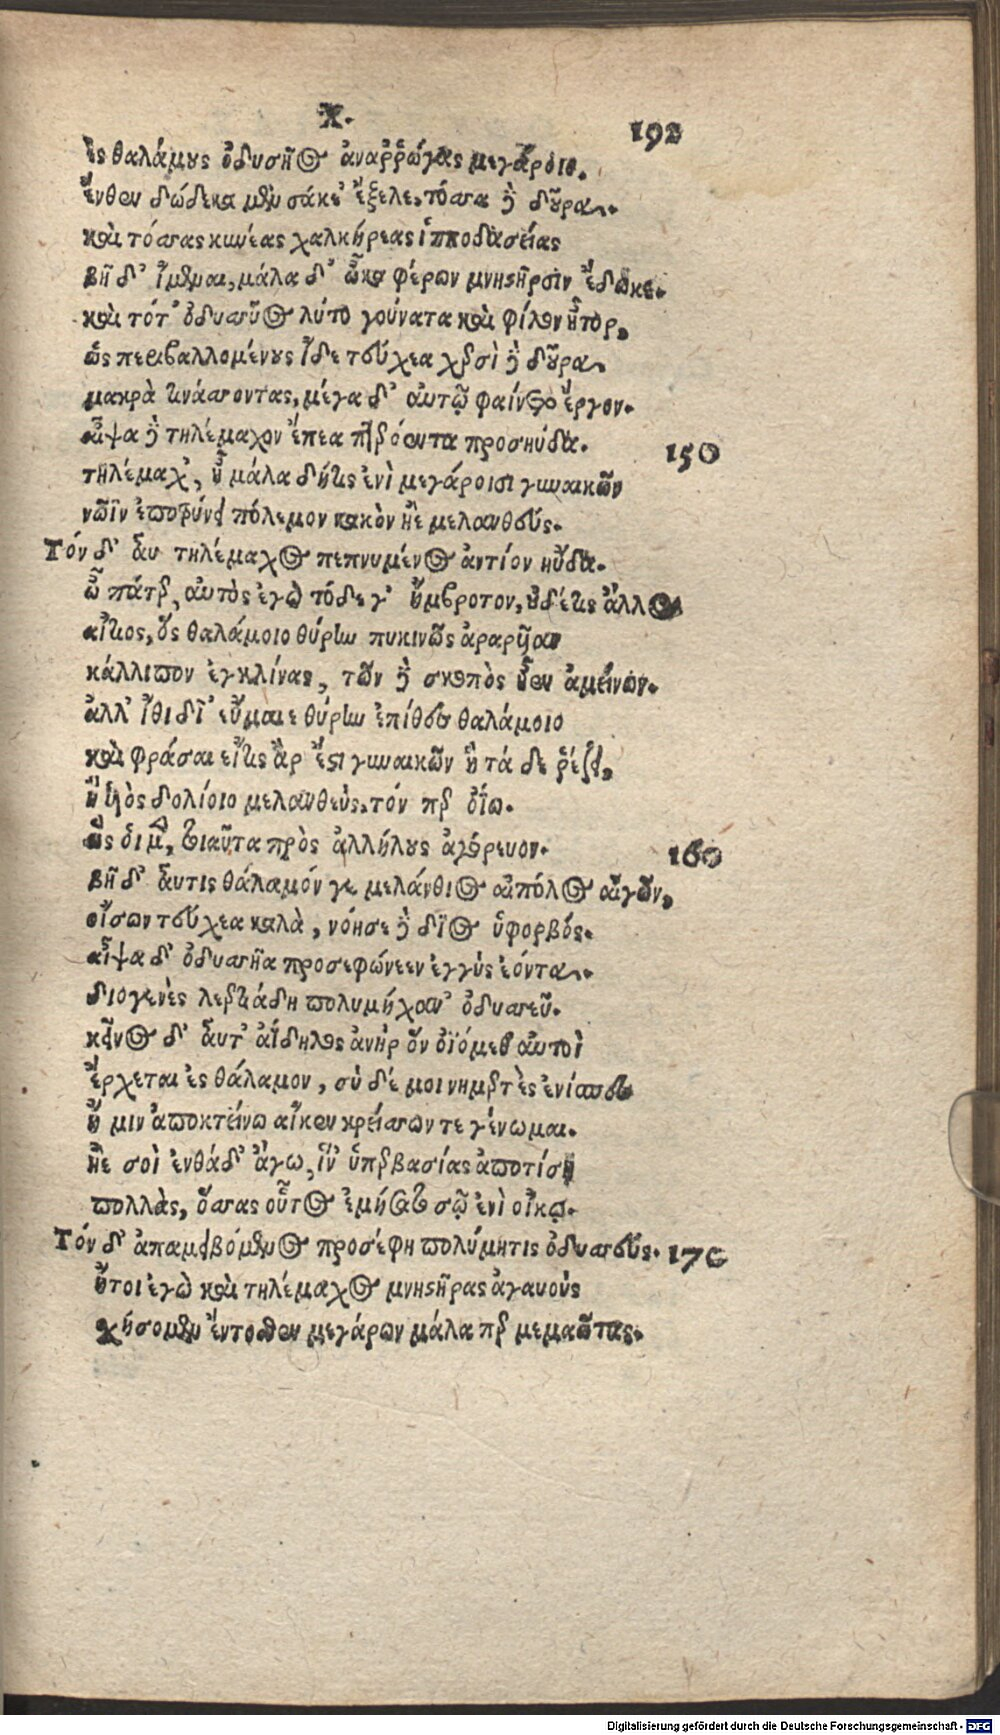 Χ.
192
ἐς θαλάμους ὀδυσῆος ἀναῤῥῶγας μεγάροιο.
ἔνθεν δώδεκα μὲν σάκε' ἔξελε, τόσσα δὲ δοῦρα,
καὶ τόσσας κυνέας χαλκήρεας ἱπποδασείας
βῆ δ' ἴμεναι, μάλα δ' ὦκα φέρων μνηστῆρσιν ἔδωκε.
καὶ τότ' ὀδυσσῆος λύτο γούνατα καὶ φίλον ἦτορ,
ὡς περιβαλλομένους ἴδε τεύχεα χερσὶ δὲ δοῦρα
μακρὰ τινάσσοντας, μέγα δ' αὐτῷ φαίνετο ἔργον.
αἶψα δὲ τηλέμαχον ἔπεα πτερόεντα προσηύδα.
150
τηλέμαχ', ἦ μάλα δή τις ἐνὶ μεγάροισι γυναικῶν
νῶϊν ἐποτρύνει πόλεμον κακὸν ἠὲ μελανθεύς.
Τόν δ' αὖ τηλέμαχος πεπνυμένος ἀντίον ηὔδα.
ὦ πάτερ, αὐτὸς ἐγὼ τόδε γ' ἤμβροτον, οὐδέ τις ἄλλος
αἴτιος, ὃς θαλάμοιο θύρην πυκινῶς ἀραρῆαν
κάλλιπον ἐγκλίνας, τῶν δὲ σκοπὸς ἦεν ἀμείνων.
ἀλλ' ἴθι δῖ' εὔμαιε θύρην ἐπίθες θαλάμοιο
καὶ φράσαι εἴ τις ἄρ ἐστι γυναικῶν ἣ τά δε ῥέζει,
ἢ υἱὸς δολίοιο μελανθεὺς, τόν περ ὀΐω.
ὣς οἱ μὲν, τοιαῦτα πρὸς ἀλλήλους ἀγόρευον.
160
βῆ δ' αὖτις θάλαμόν γε μελάνθιος αἰπόλος αἰγῶν,
οἴσων τεύχεα καλὰ, νόησε δὲ δῖος ὑφορβός.
αἶψα δ' ὀδυσσῆα προσεφώνεεν ἐγγὺς ἐόντα.
διογενὲς λαερτιάδη πολυμήχαν' ὀδυσσεῦ.
κεῖνος δ' αὖτ' ἀΐδηλος ἀνὴρ ὃν ὀϊόμεθ' αὐτοὶ
ἔρχεται ἐς θάλαμον, σὺ δέ μοι νημερτὲς ἐνίσπες
ἤ μιν ἀποκτείνω αἴκεν κρείσσων τε γένωμαι.
ἦε σοὶ ἐνθάδ' ἄγω, ἵν' ὑπερβασίας ἀποτίσῃ
πολλὰς, ὅσσας οὗτος ἐμήσατο σῷ ἐνὶ οἴκῳ.
Τόν δ' ἀπαμειβόμενος προσέφη πολύμητις ὀδυσσεύς.
170
ἤτοι ἐγὼ καὶ τηλέμαχος μνηστῆρας ἀγαυοὺς
χήσομεν ἔντοσθεν μεγάρων μάλα περ μεμαῶτας.
Digitalisierung gefördert durch die Deutsche Forschungsgemeinschaft - DFG